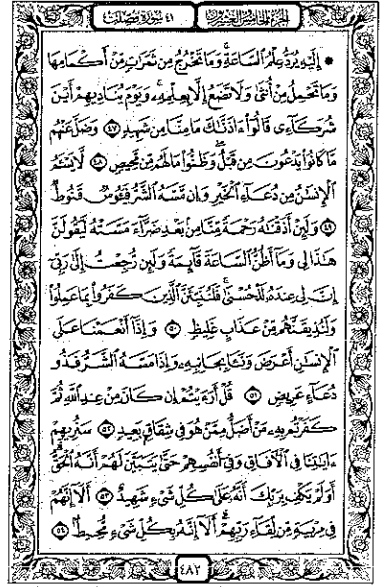 الجزء الخامس والعشرون
٤١ سورة فصلت
۞ إِلَيْهِ يُرَدُّ عِلْمُ ٱلسَّاعَةِۚ وَمَا تَخْرُجُ مِن ثَمَرَٰتٖ مِّنْ أَكْمَامِهَا
وَمَا تَحْمِلُ مِنْ أُنثَىٰ وَلَا تَضَعُ إِلَّا بِعِلْمِهِۦۚ وَيَوْمَ يُنَادِيهِمْ أَيْنَ
شُرَكَآءِى قَالُوٓا۟ ءَاذَنَّٰكَ مَا مِنَّا مِن شَهِيدٖ ٤٧ وَضَلَّ عَنْهُم
مَّا كَانُوا۟ يَدْعُونَ مِن قَبْلُۖ وَظَنُّوا۟ مَا لَهُم مِّن مَّحِيصٖ ٤٨ لَّا يَسْـَٔمُ
ٱلْإِنسَٰنُ مِن دُعَآءِ ٱلْخَيْرِ وَإِن مَّسَّهُ ٱلشَّرُّ فَيَـُٔوسٞ قَنُوطٞ
٤٩ وَلَئِنْ أَذَقْنَٰهُ رَحْمَةٗ مِّنَّا مِنۢ بَعْدِ ضَرَّآءَ مَسَّتْهُ لَيَقُولَنَّ
هَٰذَا لِى وَمَآ أَظُنُّ ٱلسَّاعَةَ قَآئِمَةٗ وَلَئِن رُّجِعْتُ إِلَىٰ رَبِّىٓ
إِنَّ لِى عِندَهُۥ لَلْحُسْنَىٰۚ فَلَنُنَبِّئَنَّ ٱلَّذِينَ كَفَرُوا۟ بِمَا عَمِلُوا۟
وَلَنُذِيقَنَّهُم مِّنْ عَذَابٍ غَلِيظٖ ٥٠ وَإِذَآ أَنْعَمْنَا عَلَى
ٱلْإِنسَٰنِ أَعْرَضَ وَنَـَٔا بِجَانِبِهِۦ وَإِذَا مَسَّهُ ٱلشَّرُّ فَذُو
دُعَآءٍ عَرِيضٖ ٥١ قُلْ أَرَءَيْتُمْ إِن كَانَ مِنْ عِندِ ٱللَّهِ ثُمَّ
كَفَرْتُم بِهِۦ مَنْ أَضَلُّ مِمَّنْ هُوَ فِى شِقَاقٍۭ بَعِيدٖ ٥٢ سَنُرِيهِمْ
ءَايَٰتِنَا فِى ٱلْءَافَاقِ وَفِىٓ أَنفُسِهِمْ حَتَّىٰ يَتَبَيَّنَ لَهُمْ أَنَّهُ ٱلْحَقُّۗ
أَوَلَمْ يَكْفِ بِرَبِّكَ أَنَّهُۥ عَلَىٰ كُلِّ شَىْءٖ شَهِيدٌ ٥٣ أَلَآ إِنَّهُمْ
فِى مِرْيَةٖ مِّن لِّقَآءِ رَبِّهِمْۗ أَلَآ إِنَّهُۥ بِكُلِّ شَىْءٖ مُّحِيطُۢ ٥٤
٤٨٢